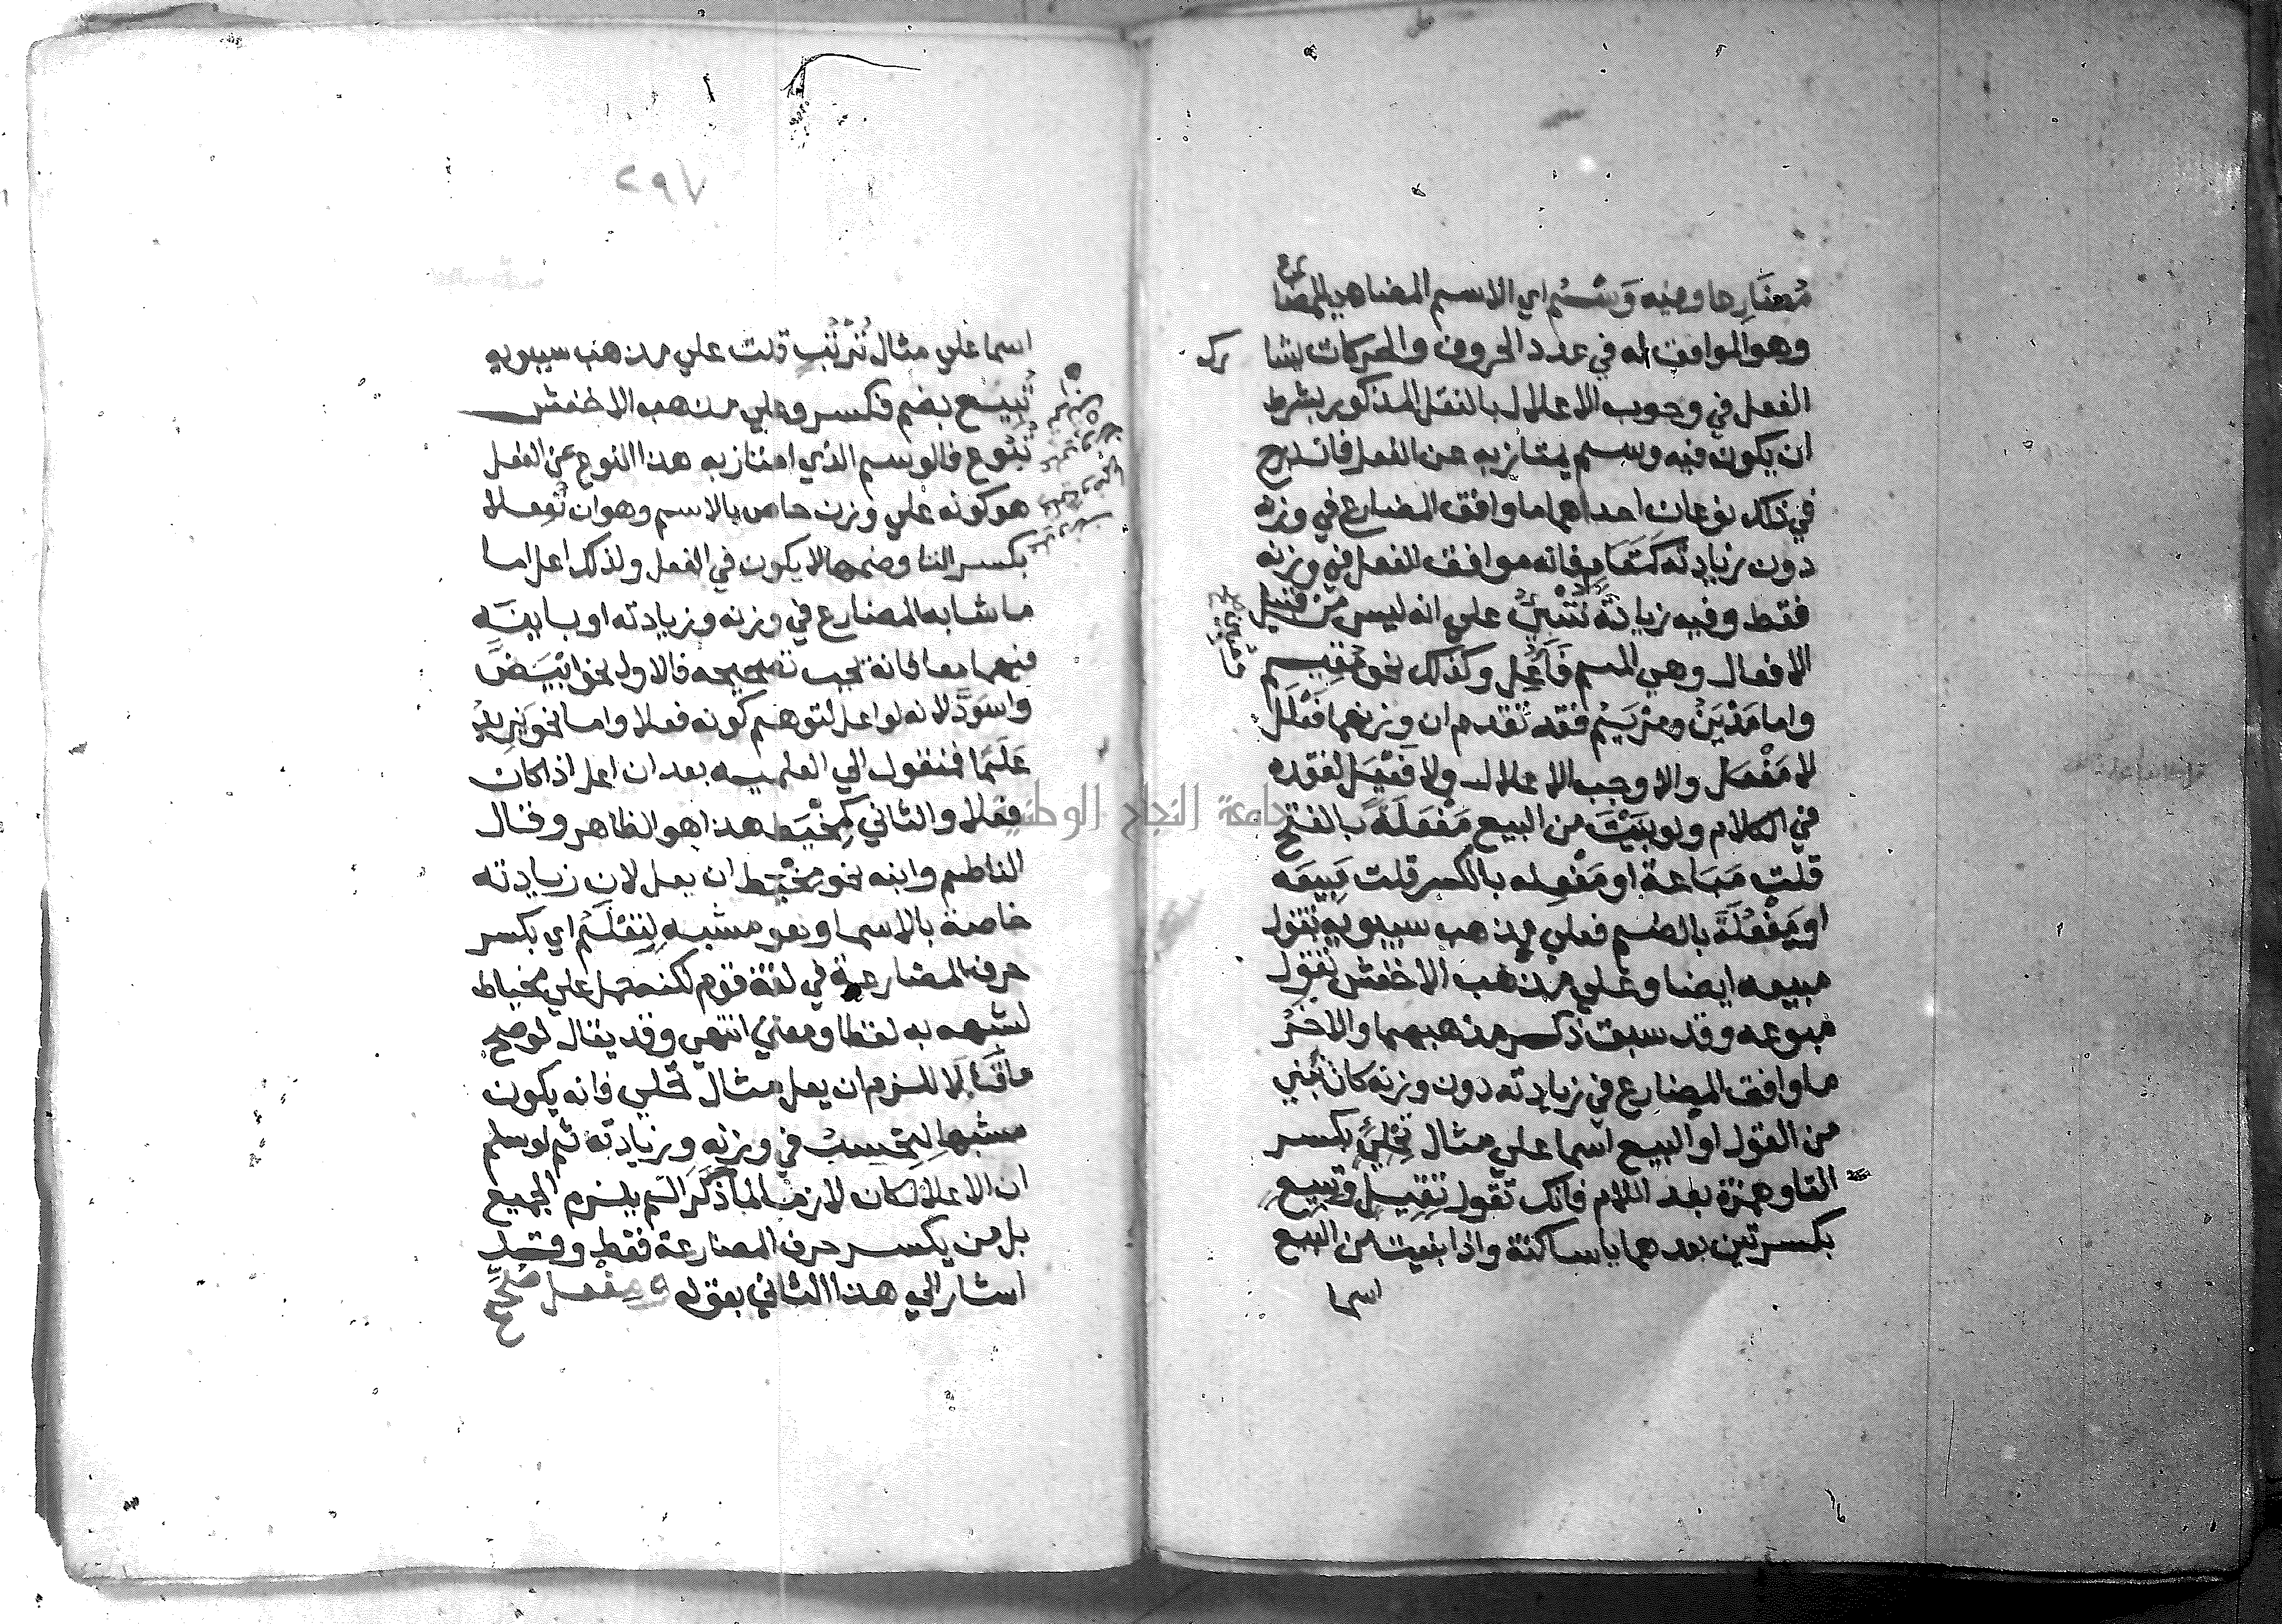 مُضَارعا وفيه وَسْمُ اي الاسم المضاهي للمضارع
وهو الموافق له في عدد الحروف والحركات يشارك
الفعل في وجوب الاعلال بالنقل المذكور بشرط
ان يكون فيه وسم يمتاز به عن الفعل فاندرج
في ذلك نوعان احداهما ما وافق المضارع في وزنه
دون زيادته كَمَقَام فانه موافق للفعل في وزنه
فقط وفيه زيادة تنبئ على انه ليس من قبيل
الافعال وهي الميم فَاُعِلّ وكذلك نحو مُقِيم
واما مَدْيَنُ ومَرْيَمُ فقد تقدم ان وزنهما فَعْلَل
لا مَفْعَل والا وجب الاعلال ولا فَعْيَل لفقده
في الكلام ولو بنَيْتَ من البيع مَفْعَلَةً بالفتح
قلت مَبَاعة او مَفْعِله بالكسر قلت مَبِيعَه
او مَفْعُلَةً بالضم فعلى مذهب سيبويه تقول
مبيعه ايضا وعلى مذهب الاخفش تقول
مبوعه وقد سبق ذكر مذهبهما والاخَرُ
ما وافق المضارع في زيادته دون وزنه كان تبني
من القول او البيع اسما علي مثال تِحْلِئٍ بكسر
التا وهمزة بعد اللام فانك تقول تِقِيل وتِبِيع
بكسرتين بعدهما يا ساكنة واذا بنيت من البيع
اسما
٢٩٧
اسما علي مثال تُرْتُبٍ قلت علي مذهب سيبويه
تُبِيع بضم فكسر وعلي مذهب الاخفش
تُبُوع فالوسم الذي امتاز به هذا النوع عن الفعل
هو كونه علي وزن خاص بالاسم وهو ان تُفِعلا
بكسر التا وضمها لا يكون في الفعل ولذلك اعل اما
ما شابه المضارع في وزنه وزيادته او باينَه
فيهما معا فانه يجب تصحيحه فالاول نحو ابْيَضَّ
واسوَدَّ لانه لو اعل لتوهم كونه فعلا واما نحو يَزِيدُ
عَلَمًا فمنقول الي العلميه بعد ان اعل اذا كان
فعلا والثاني كمِخْيَط هذا هو الظاهر وقال
الناظم وابنه نحو مِخْيَط ان يعل لان زيادته
خاصة بالاسما وهو مشبه لِتِعْلَمُ اي بكسر
حرف المضارعة في لغة قوم لكنه حمل علي مخياط
لشبهه به لفظا ومعني انتهي وقد يقال لو صح
ما قَالَا للزم ان يعل مثال تحلي فانه يكون
مشبها لِتِحْسِبُ في وزنه وزيادته ثم لو سلم
ان الاعلال كان لازما لما ذَكَرَا لم يلزم الجميع
بل من يكسر حرف المضارعة فقط وقد
اشار الي هذا الثاني بقوله ومِفْعل صُحِّح
جامعة النجاح الوطنية